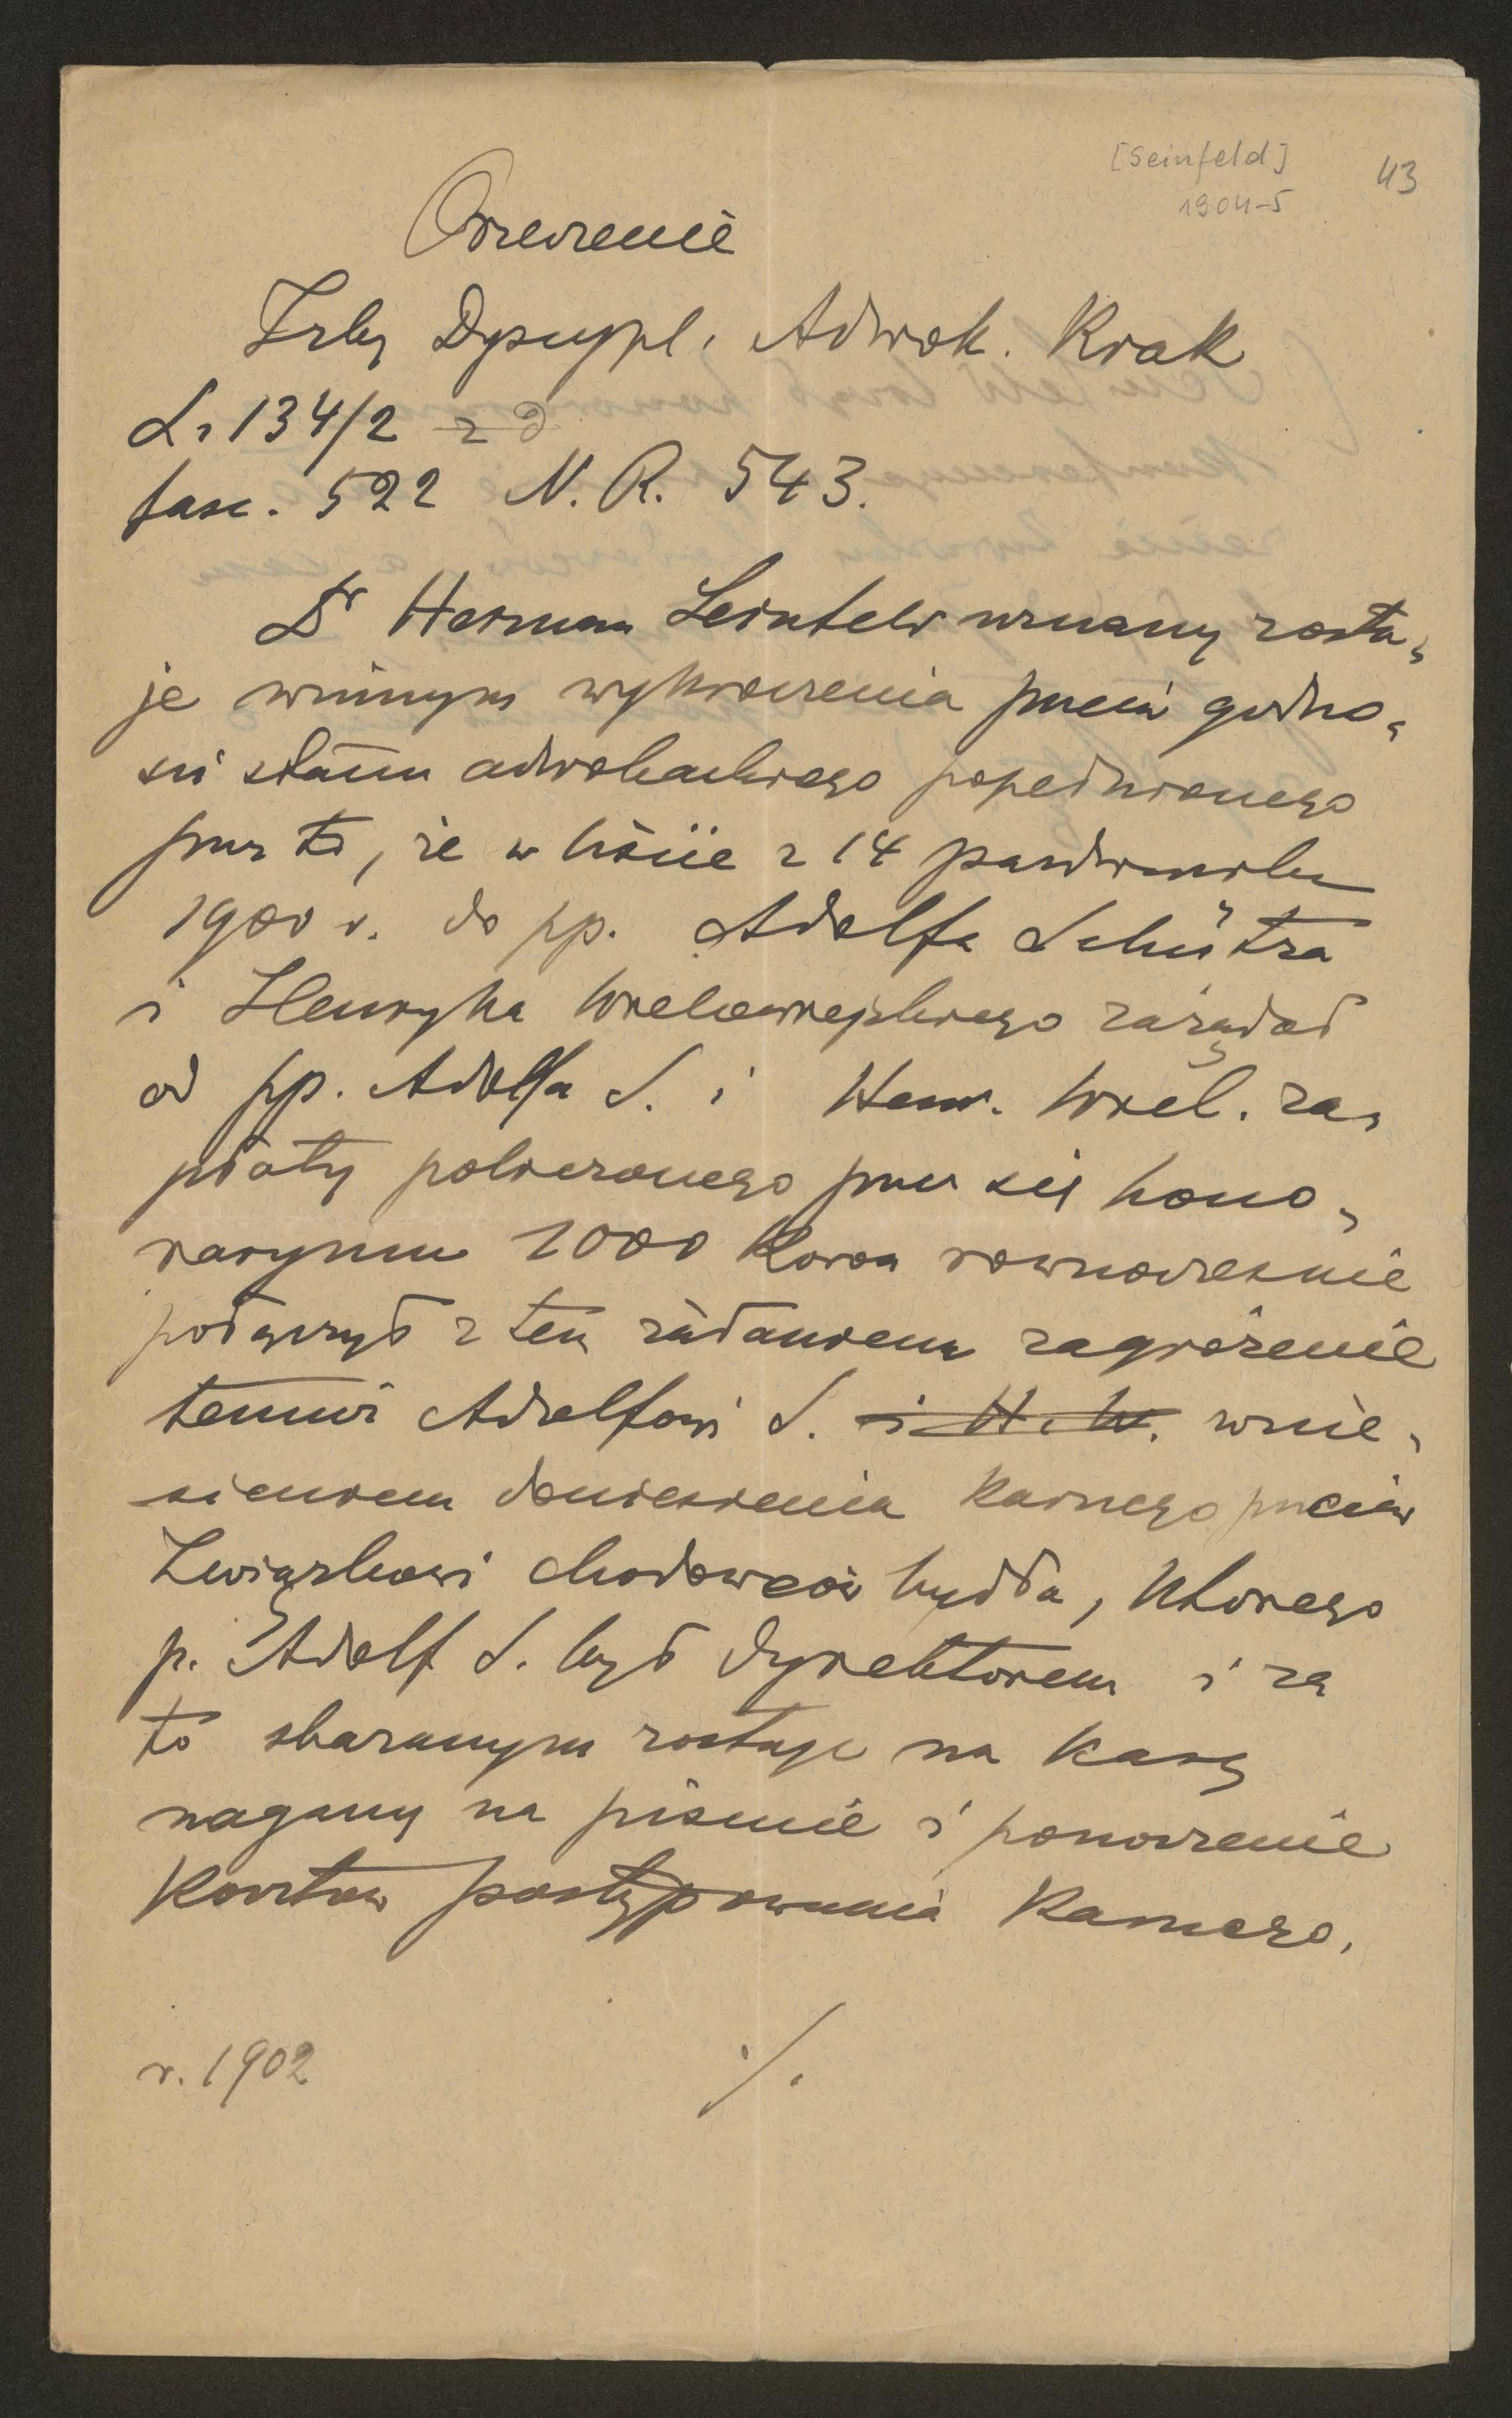 [Seinfeld] 43
1904-5
Orzeczenie
Izby Dyscypl. Adwok. Krak
L. 134/2
fasc. 522 N. R. 543.
Dr Herman Seinfeld uznany zosta,
je winnym wykroczenia przeciw godno,
ści stanu adwokackiego popełnionego
przez to, że w liście z 14 października
1900 r. do pp. Adolfa Schütza
i Henryka Wielowieyskiego zażądał
od pp. Adolfa S. i Henr. Wiel. za,
płaty policzonego przez się hono,
raryum 1000 koron równocześnie
połączył z tem żądaniem zagrożenie
temuż Adolfowi S. i H. W. wnie,
sieniem doniesienia karnego przeciw
Związkowi chodowców bydła, którego
p. Adolf S. był dyrektorem i za
to skazanym zostaje na karę
nagany na piśmie i ponoszenie
kosztów postępowania karnego.
r. 1902 ./.